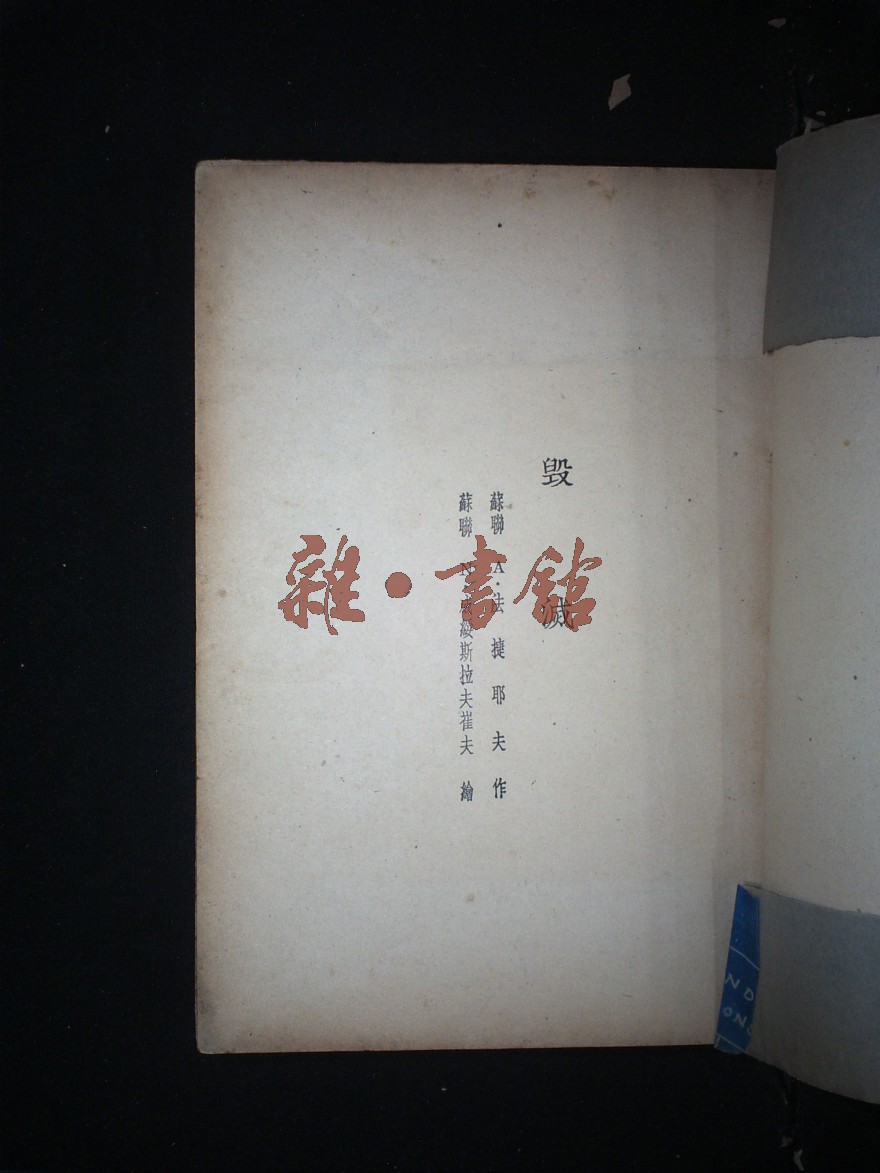 毁滅
蘇聯 A·法捷耶夫 作
蘇聯 N 綏斯拉夫崔夫 繪
雜·書館
ND
ONG